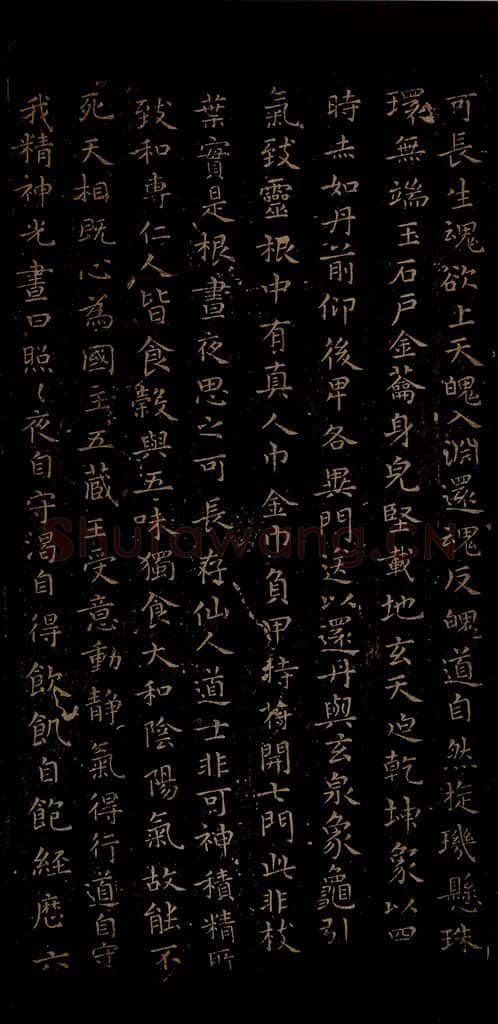 可長生魂欲上天魄入淵還魂反魄道自然旋璣懸珠
環無端玉石戶金籥身皃堅載地玄天迫乾坤象以四
時赤如丹前仰後卑各異門送以還丹與玄泉象龜引
氣致靈根中有真人巾金巾負甲持符開七門此非枝
葉實是根晝夜思之可長存仙人道士非可神積精所
致和專仁人皆食穀與五味獨食大和陰陽氣故能不
死天相既心為國主五藏王受意動靜氣得行道自守
我精神光晝日照々夜自守渴自得飲飢自飽經歷六
Shufawang.CN